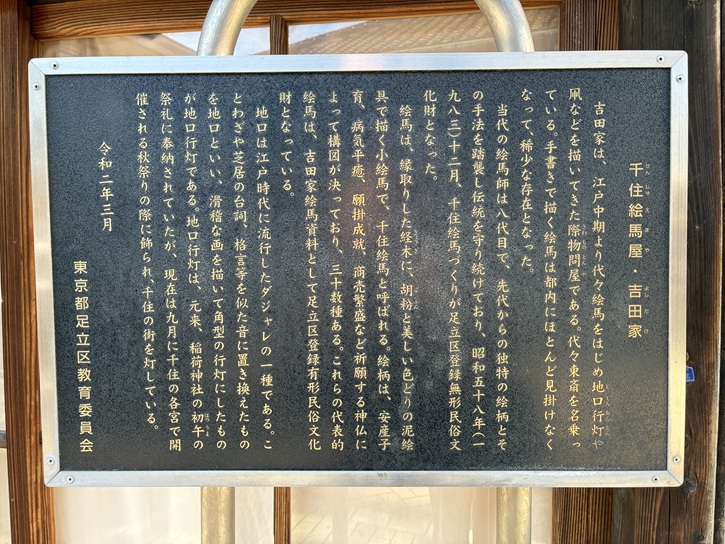 千住絵馬屋・吉田家
吉田家は、江戸中期より代々絵馬をはじめ地口行灯や
凧などを描いてきた際物問屋である。代々東斎を名乗っ
ている。手書きで描く絵馬は都内にほとんど見掛けなく
なって、稀少な存在となった。
当代の絵馬師は八代目で、先代からの独特の絵柄とそ
の手法を踏襲し伝統を守り続けており、昭和五十八年（一
九八三）十二月、千住絵馬づくりが足立区登録無形民俗文
化財となった。
絵馬は、縁取りした経木に、胡粉と美しい色どりの泥絵
具で描く小絵馬で、千住絵馬と呼ばれる。絵柄は、安産子
育、病気平癒、願掛成就、商売繁盛など祈願する神仏に
よって構図が決っており、三十数種ある。これらの代表的
絵馬は、吉田家絵馬資料として足立区登録有形民俗文化
財となっている。
地口は江戸時代に流行したダジャレの一種である。こ
とわざや芝居の台詞、格言等を似た音に置き換えたもの
を地口といい、滑稽な画を描いて角型の行灯にしたもの
が地口行灯である。地口行灯は、元来、稲荷神社の初午の
祭礼に奉納されていたが、現在は九月に千住の各宮で開
催される秋祭りの際に飾られ、千住の街を灯している。
令和二年三月
東京都足立区教育委員会